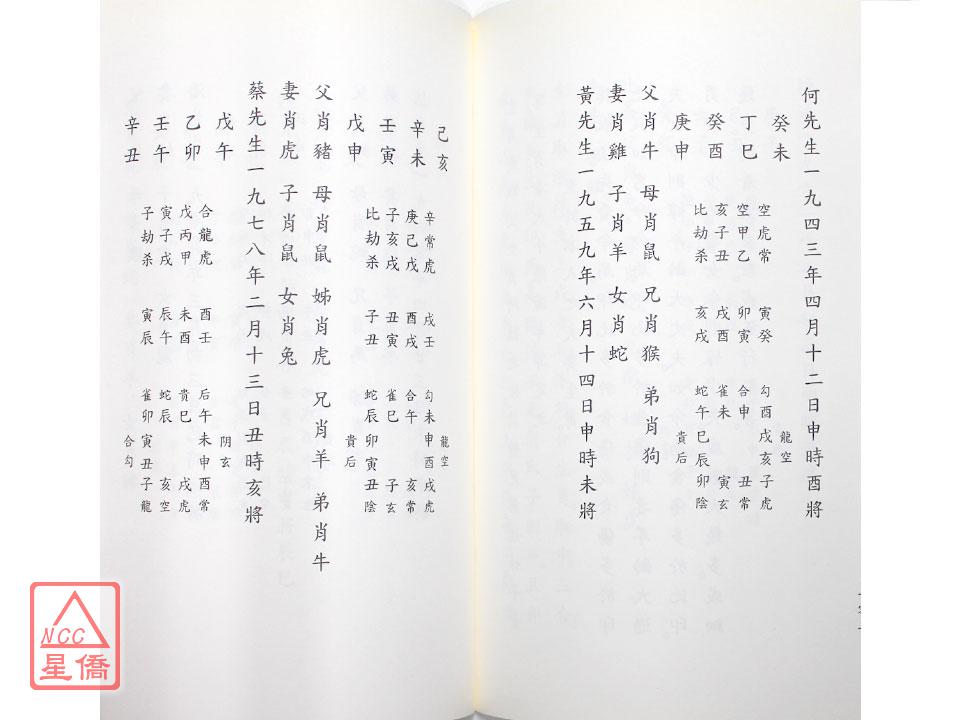 何先生一九四三年四月十二日申時酉將
癸未 龍空
空虎常 寅癸 勾酉戌亥子虎
丁巳 空甲乙 卯寅 合申 丑常
癸酉 亥子丑 戌酉 雀未 寅玄
比劫杀 亥戌 蛇午巳辰卯陰
庚申 貴后
父肖牛 母肖鼠 兄肖猴 弟肖狗
妻肖雞 子肖羊 女肖蛇
黃先生一九五九年六月十四日申時未將
己亥 龍空
辛常虎 戌壬 勾未申酉戌虎
辛未 庚己戊 酉戌 合午 亥常
壬寅 子亥戌 丑寅 雀巳 子玄
比劫杀 子丑 蛇辰卯寅丑陰
戊申 貴后
父肖豬 母肖鼠 姊肖虎 兄肖羊 弟肖牛
妻肖虎 子肖鼠 女肖兔
蔡先生一九七八年二月十三日丑時亥將
戊午 阴玄
合龍虎 酉壬 后午未申酉常
乙卯 戊丙甲 未酉 貴巳 戌虎
壬午 寅子戌 辰午 蛇辰 亥空
子劫杀 寅辰 雀卯寅丑子龍
辛丑 合勾
NCC
星僑